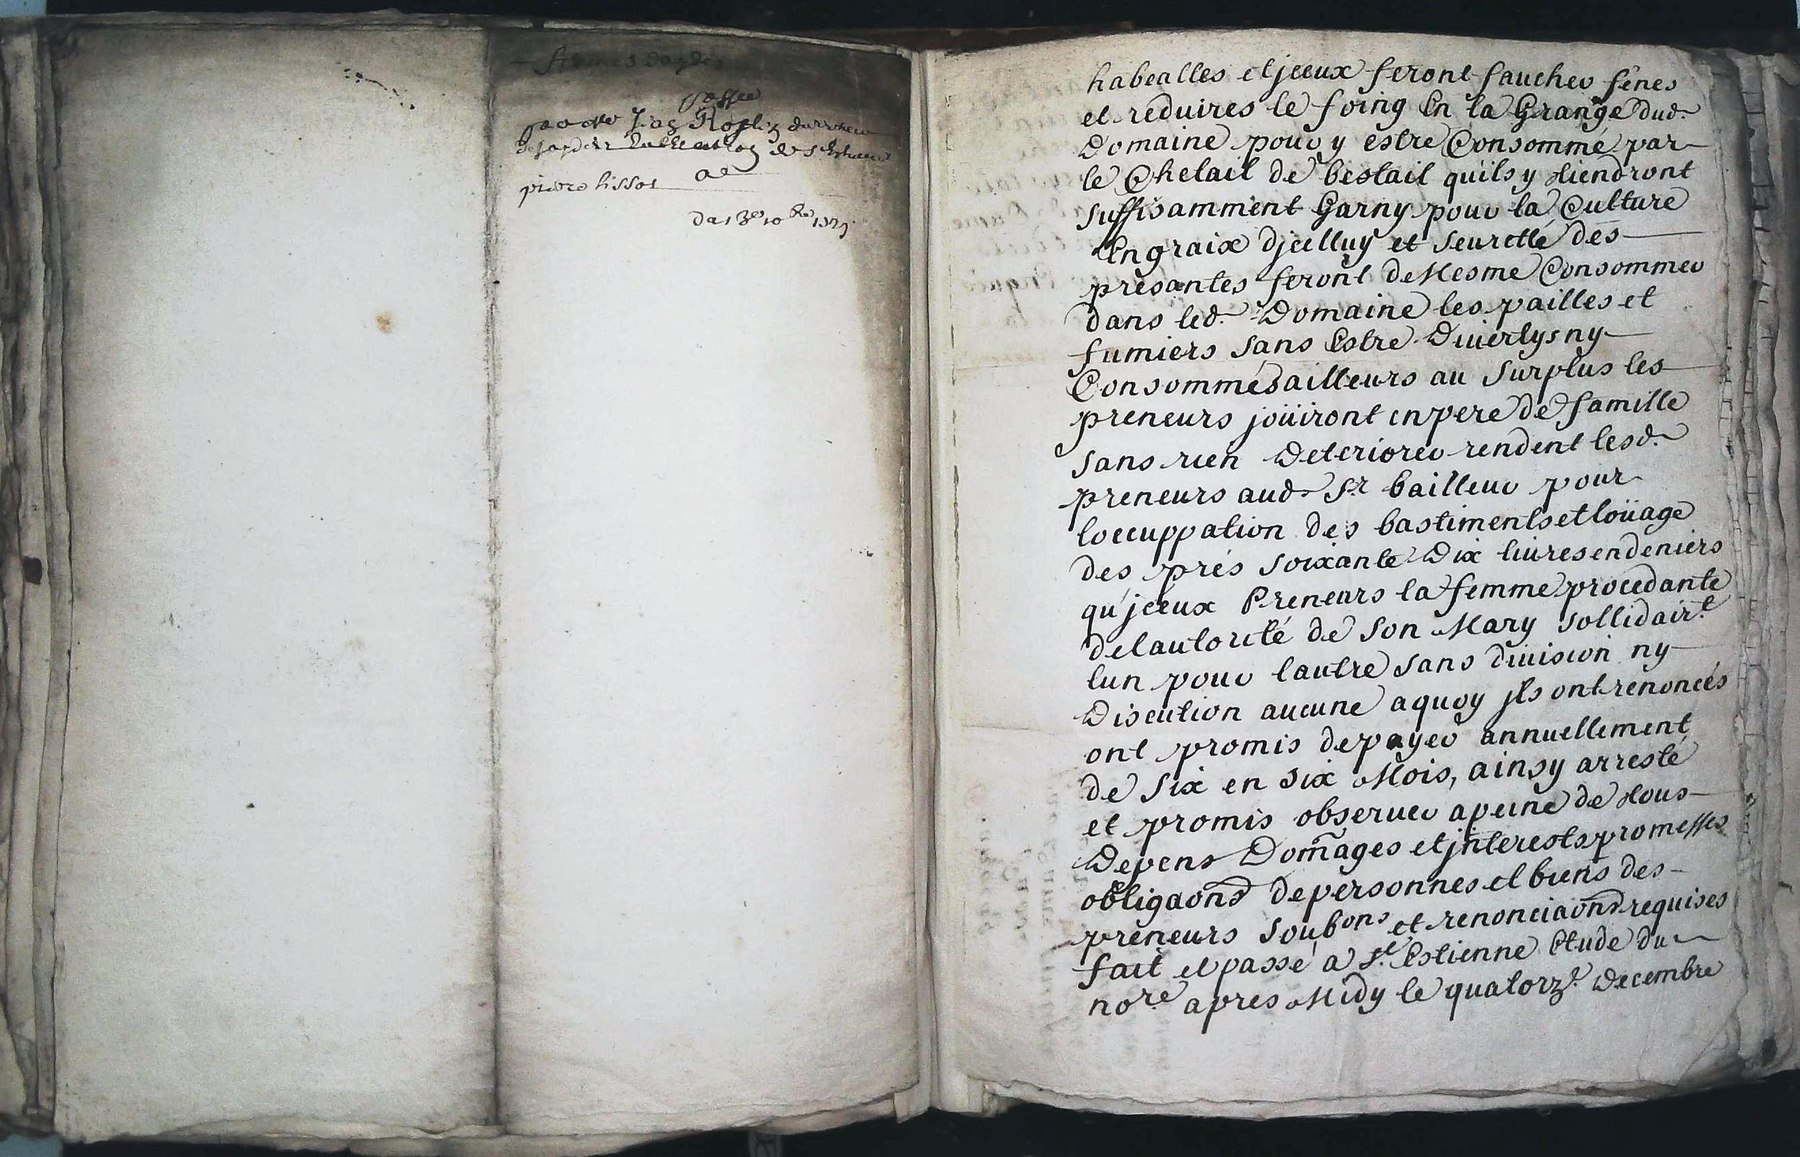 pierre lissot
habealles et jceux feront faucher fênes
et reduires le foing En la Grange dud.
Domaine pour y estre Consommé par
le Chetail de bestail qu'ils y tiendront
suffisamment Garny pour la Culture
Engraix djcelluy et seuretté des
présantes feront de Mesme Consommer
dans led. Domaine les pailles et
fumiers sans Estre Divertys ny
Consommés ailleurs au surplus les
preneurs joüiront en pere de famille
sans rien Deteriorer rendent lesd.
preneurs aud. Sr. bailleur pour
loccuppation des bastiments et loüage
des prés soixante Dix livres en deniers
qu'jceux Preneurs la femme procedante
de lautorité de son Mary sollidairt.
lun pour lautre sans division ny
Discution aucune a quoy jls ont renoncés
ont promis de payer annuellement
de Six en six Mois, ainsy arresté
et promis observer a peine de tous
Depens Dom̃ages et jnterests promesses
obligaons de personnes et biens des
preneurs soubons et renonciaons requises
fait et passé a St. Estienne Etude du
nore. apres Midy le quatorze. Decembre